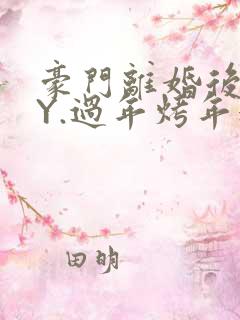 豪門離婚後
Y.過年烤年
田明